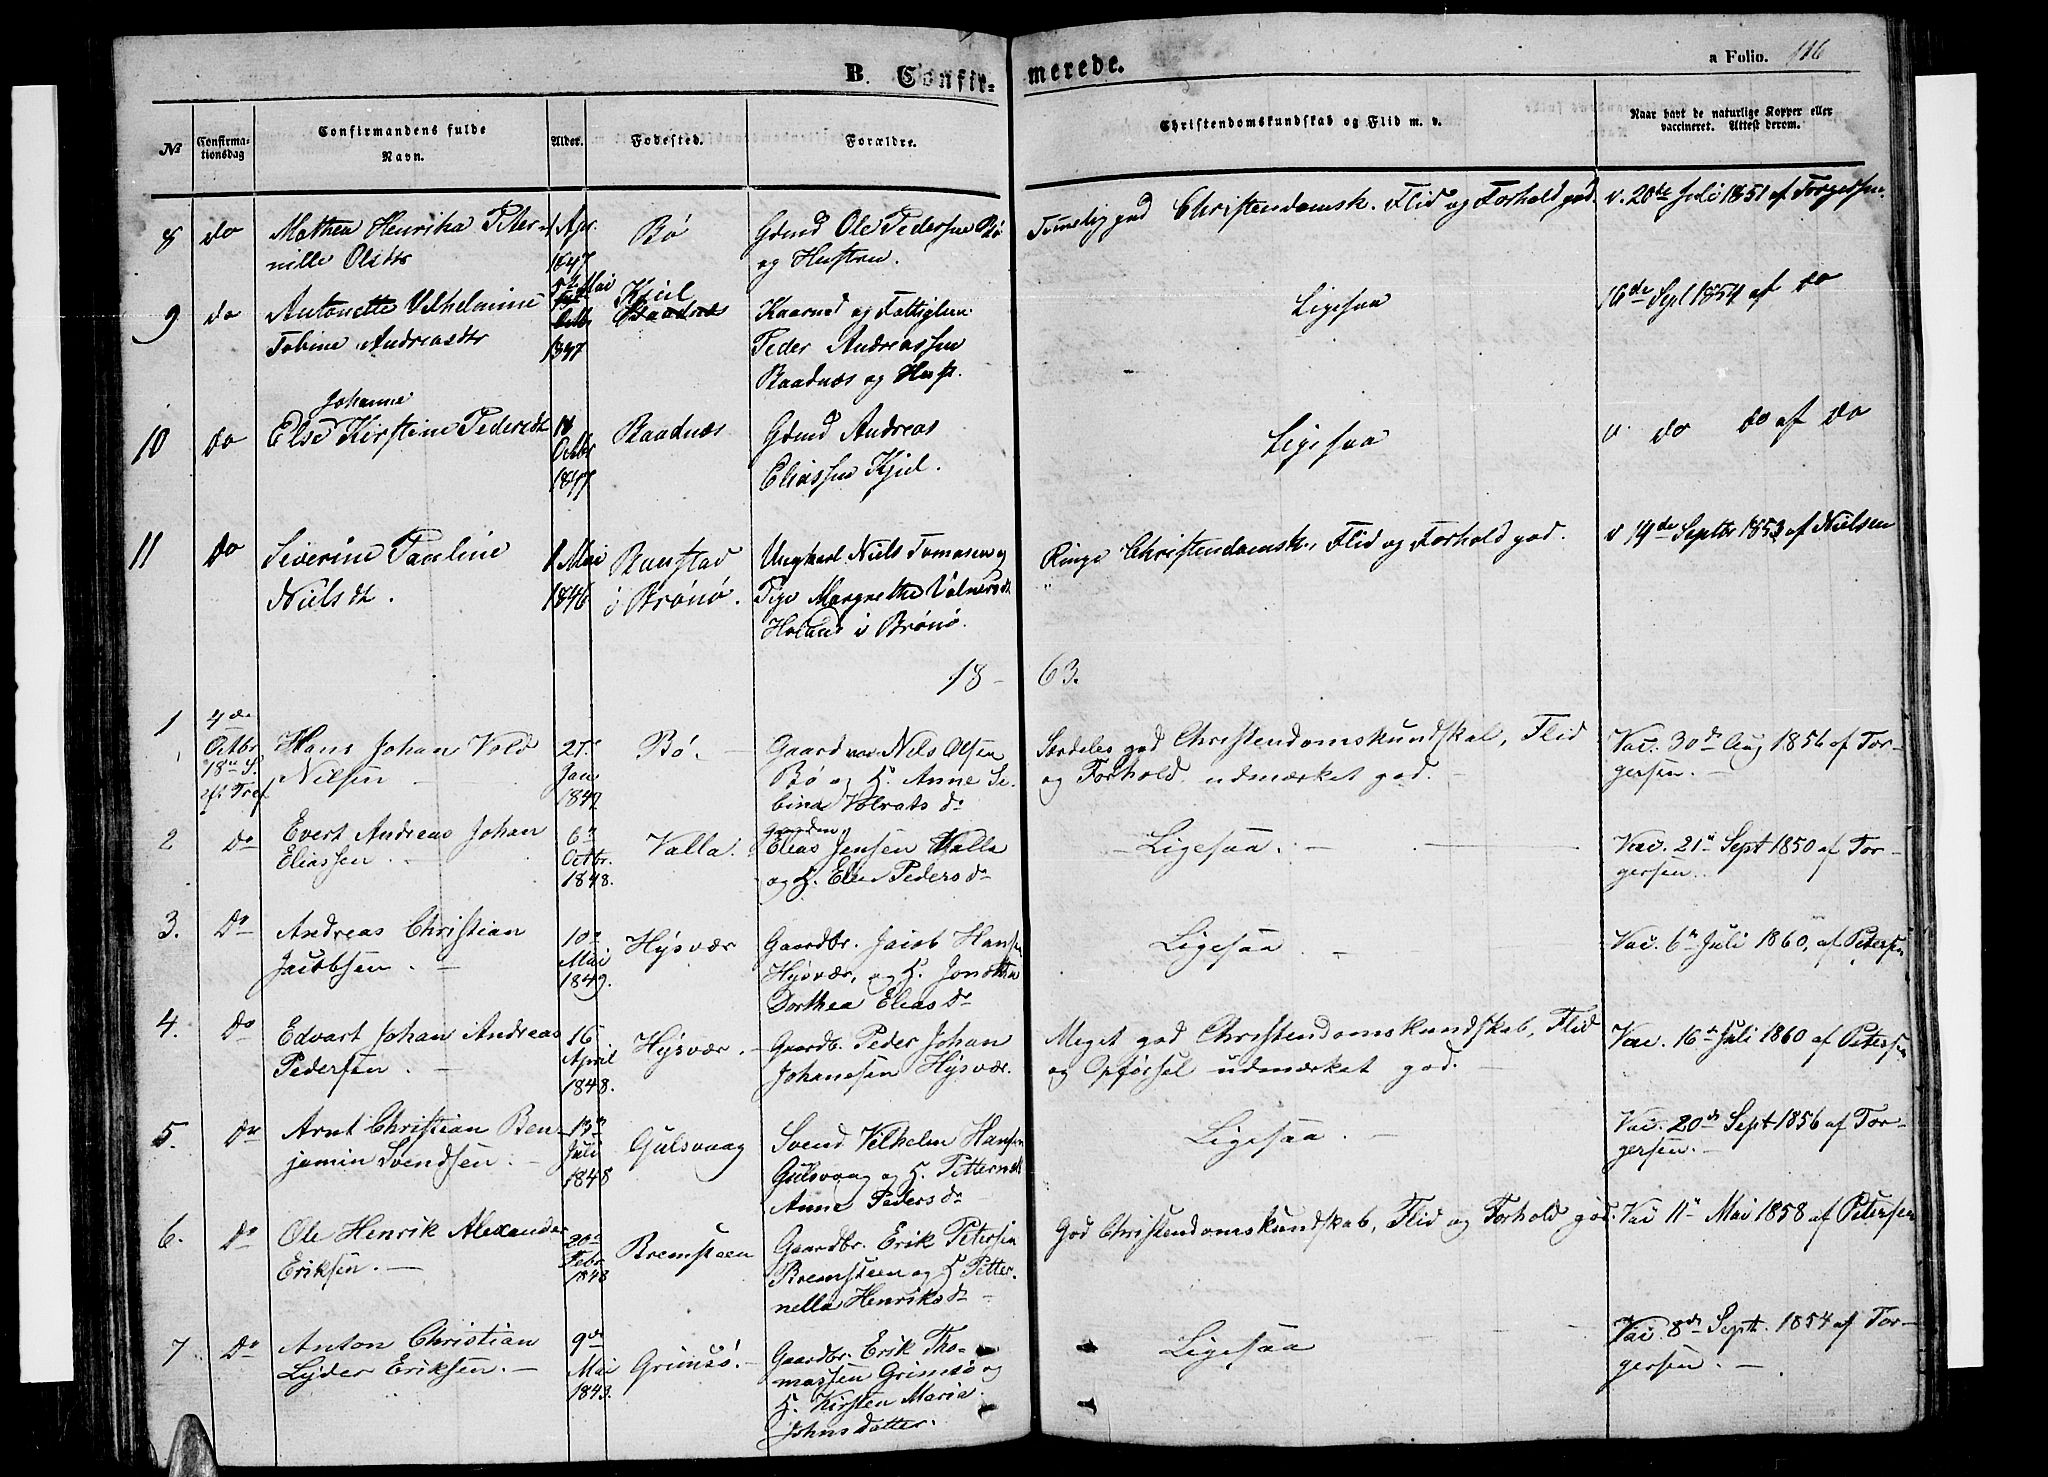 B. Confir-
merede.
a Folio. 116
No
Confirma-
tionsdag
Confirmandens fulde
Navn.
Alder.
Fødested.
Forældre.
Christendomskundskab og Flid m. v.
Naar havt de naturlige Kopper eller
vaccineret. Attest derom.
8 do Mathea Henrika Peter-
nille Olsdtr
Apr. 1847
Bø
Gdmd Ole Pedersen Bø
og Hustru.
Temelig god Christendomsk. Flid og Forhold god.
v. 20de Juli 1851 af Torgersen.
9 do Antonette Vilhelmine
Tobine Andreasdtr
Mai
Octbr
1847
Kjul
Baadnæs
Kaarmd og Fattiglem
Peder Andreassen
Baadnæs og Hust.
Ligesaa
16de Sept 1854 af do
Johanne
10 do Else Kirstine Pedersdt
18
Octbr
1847
Baadnæs
Gdmd Andreas
Eliassen Kjul.
Ligesaa
v. do do af do
11 do Siverine Pauline
Nielsdt.
1 Mai
1846
Bønstad
i Brønø.
Ungkarl Niels Tomasen og
Pige Margrethe Volmersdt
Holand i Brønø.
Ringe Christendomsk., Flid og Forhold god.
v 19de Septbr 1853 af Nielsen
18-
63.
1 4de
Octbr
18de S.
eft Tref
Hans Johan Vold
Nilsen
27e
Jan.
1849
Bø. -
Gaardm Nils Olsen
Bø og H. Anne Se-
bina Volrats dr
Særdeles god Christendomskundskab, Flid
og Forhold udmærket god.
Vac. 30de Aug 1856 af Tor-
gersen. -
2 Do Evert Andreas Johan
Eliassen. -
6te
Octbr.
1848.
Valla.
Gaardm
Elias Jensen Valla
og H. Elen Pedersdr
- Ligesaa. -
Vac. 21de Sept 1850 af Tor-
gersen.
3. Do Andreas Christian
Jacobsen. -
10de
Mai
1849.
Hysvær
Gaardbr. Jacob Hansen
Hysvær, og H. Jonetta
Dorthea Elias dr
Ligesaa. -
Vac. 6te Juli 1860, af Petersen
4. Do Edvart Johan Andreas
Pedersen. -
16
April
1848.
Hysvær. -
Gaardb. Peder Johan
Johansen Hysvær.
Meget god Christendomskundskab, Flid
og Opførsel udmærket god. -
Vac. 16de Juli 1860 af Petersen
5. Do Arnt Christian Ben-
jamin Svendsen. -
13de
Juli
1848
Gulsvaag
Svend Vilhelm Hansen
Gulsvaag og H. Petternelle
Anne Pedersdr
Ligesaa. -
Vac. 20de Sept 1856 af Tor-
gersen. -
6. Do Ole Henrik Alexander
Eriksen. -
20de
Febr
1848
Bremsteen
Gaardbr. Erik Petersen
Bremsteen og H Petter-
nella Henriksdr -
God Christendomskundskab, Flid og Forhold god.
Vac 11te Mai 1858 af Petersen
7 Do Anton Christian
Lyder Eriksen. -
9de
Mai
1848.
Grimsø. -
Gaardbr. Erik Tho-
massen Grimsø og
H. Kirsten Maria
Johnsdatter.
Ligesaa
Vac. 8de Sept. 1854 af Tor-
gersen. -